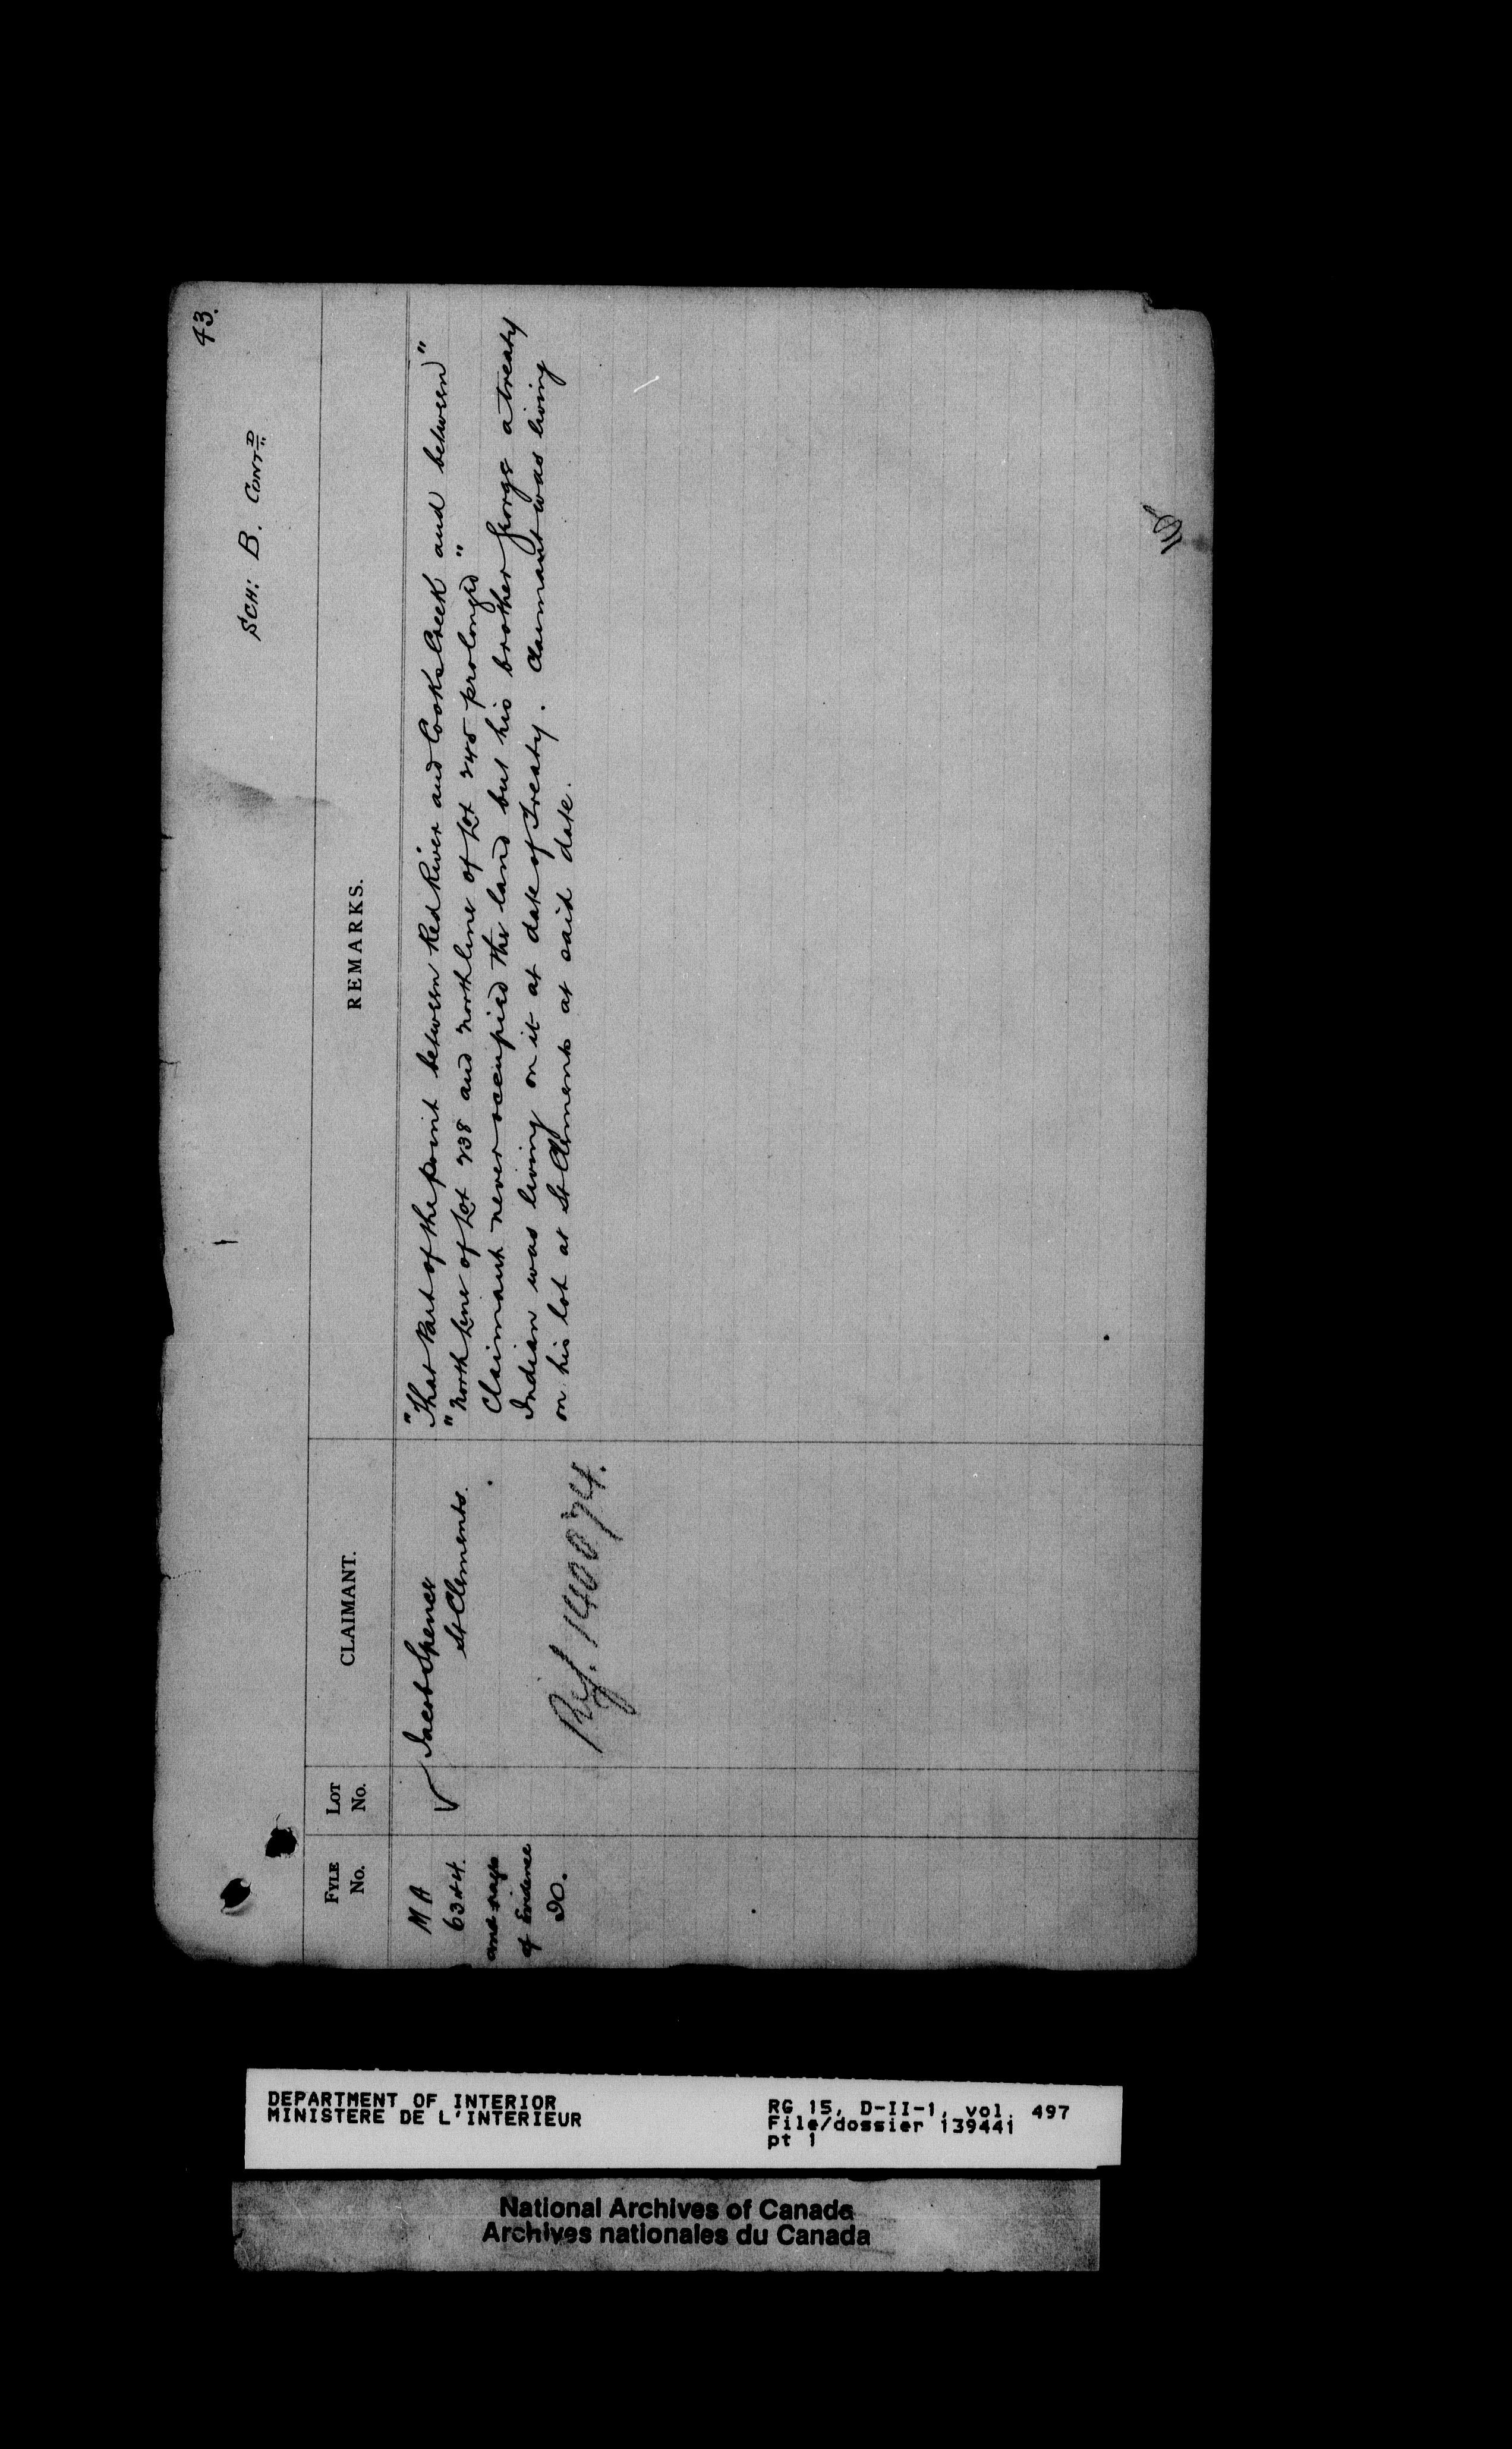 43.
SCH: B. CONT'D
FYLE No.
LOT No.
CLAIMANT.
REMARKS.
M A
6344.
and page
of Evidence
20.
✓ Jacob Spence
St Clements.
Ref. 140074.
"That Part of the point between Red River and Cooks Creek and between"
"North Line of Lot 238 and North line of Lot 245 prolonged"
Claimant never occupied the land but his brother George a treaty
Indian was living on it at date of Treaty. Claimant was living
on his lot at St Clements at said date.
DEPARTMENT OF INTERIOR
MINISTERE DE L'INTERIEUR
RG 15, D-II-1, vol. 497
File/dossier 139441
pt 1
National Archives of Canada
Archives nationales du Canada